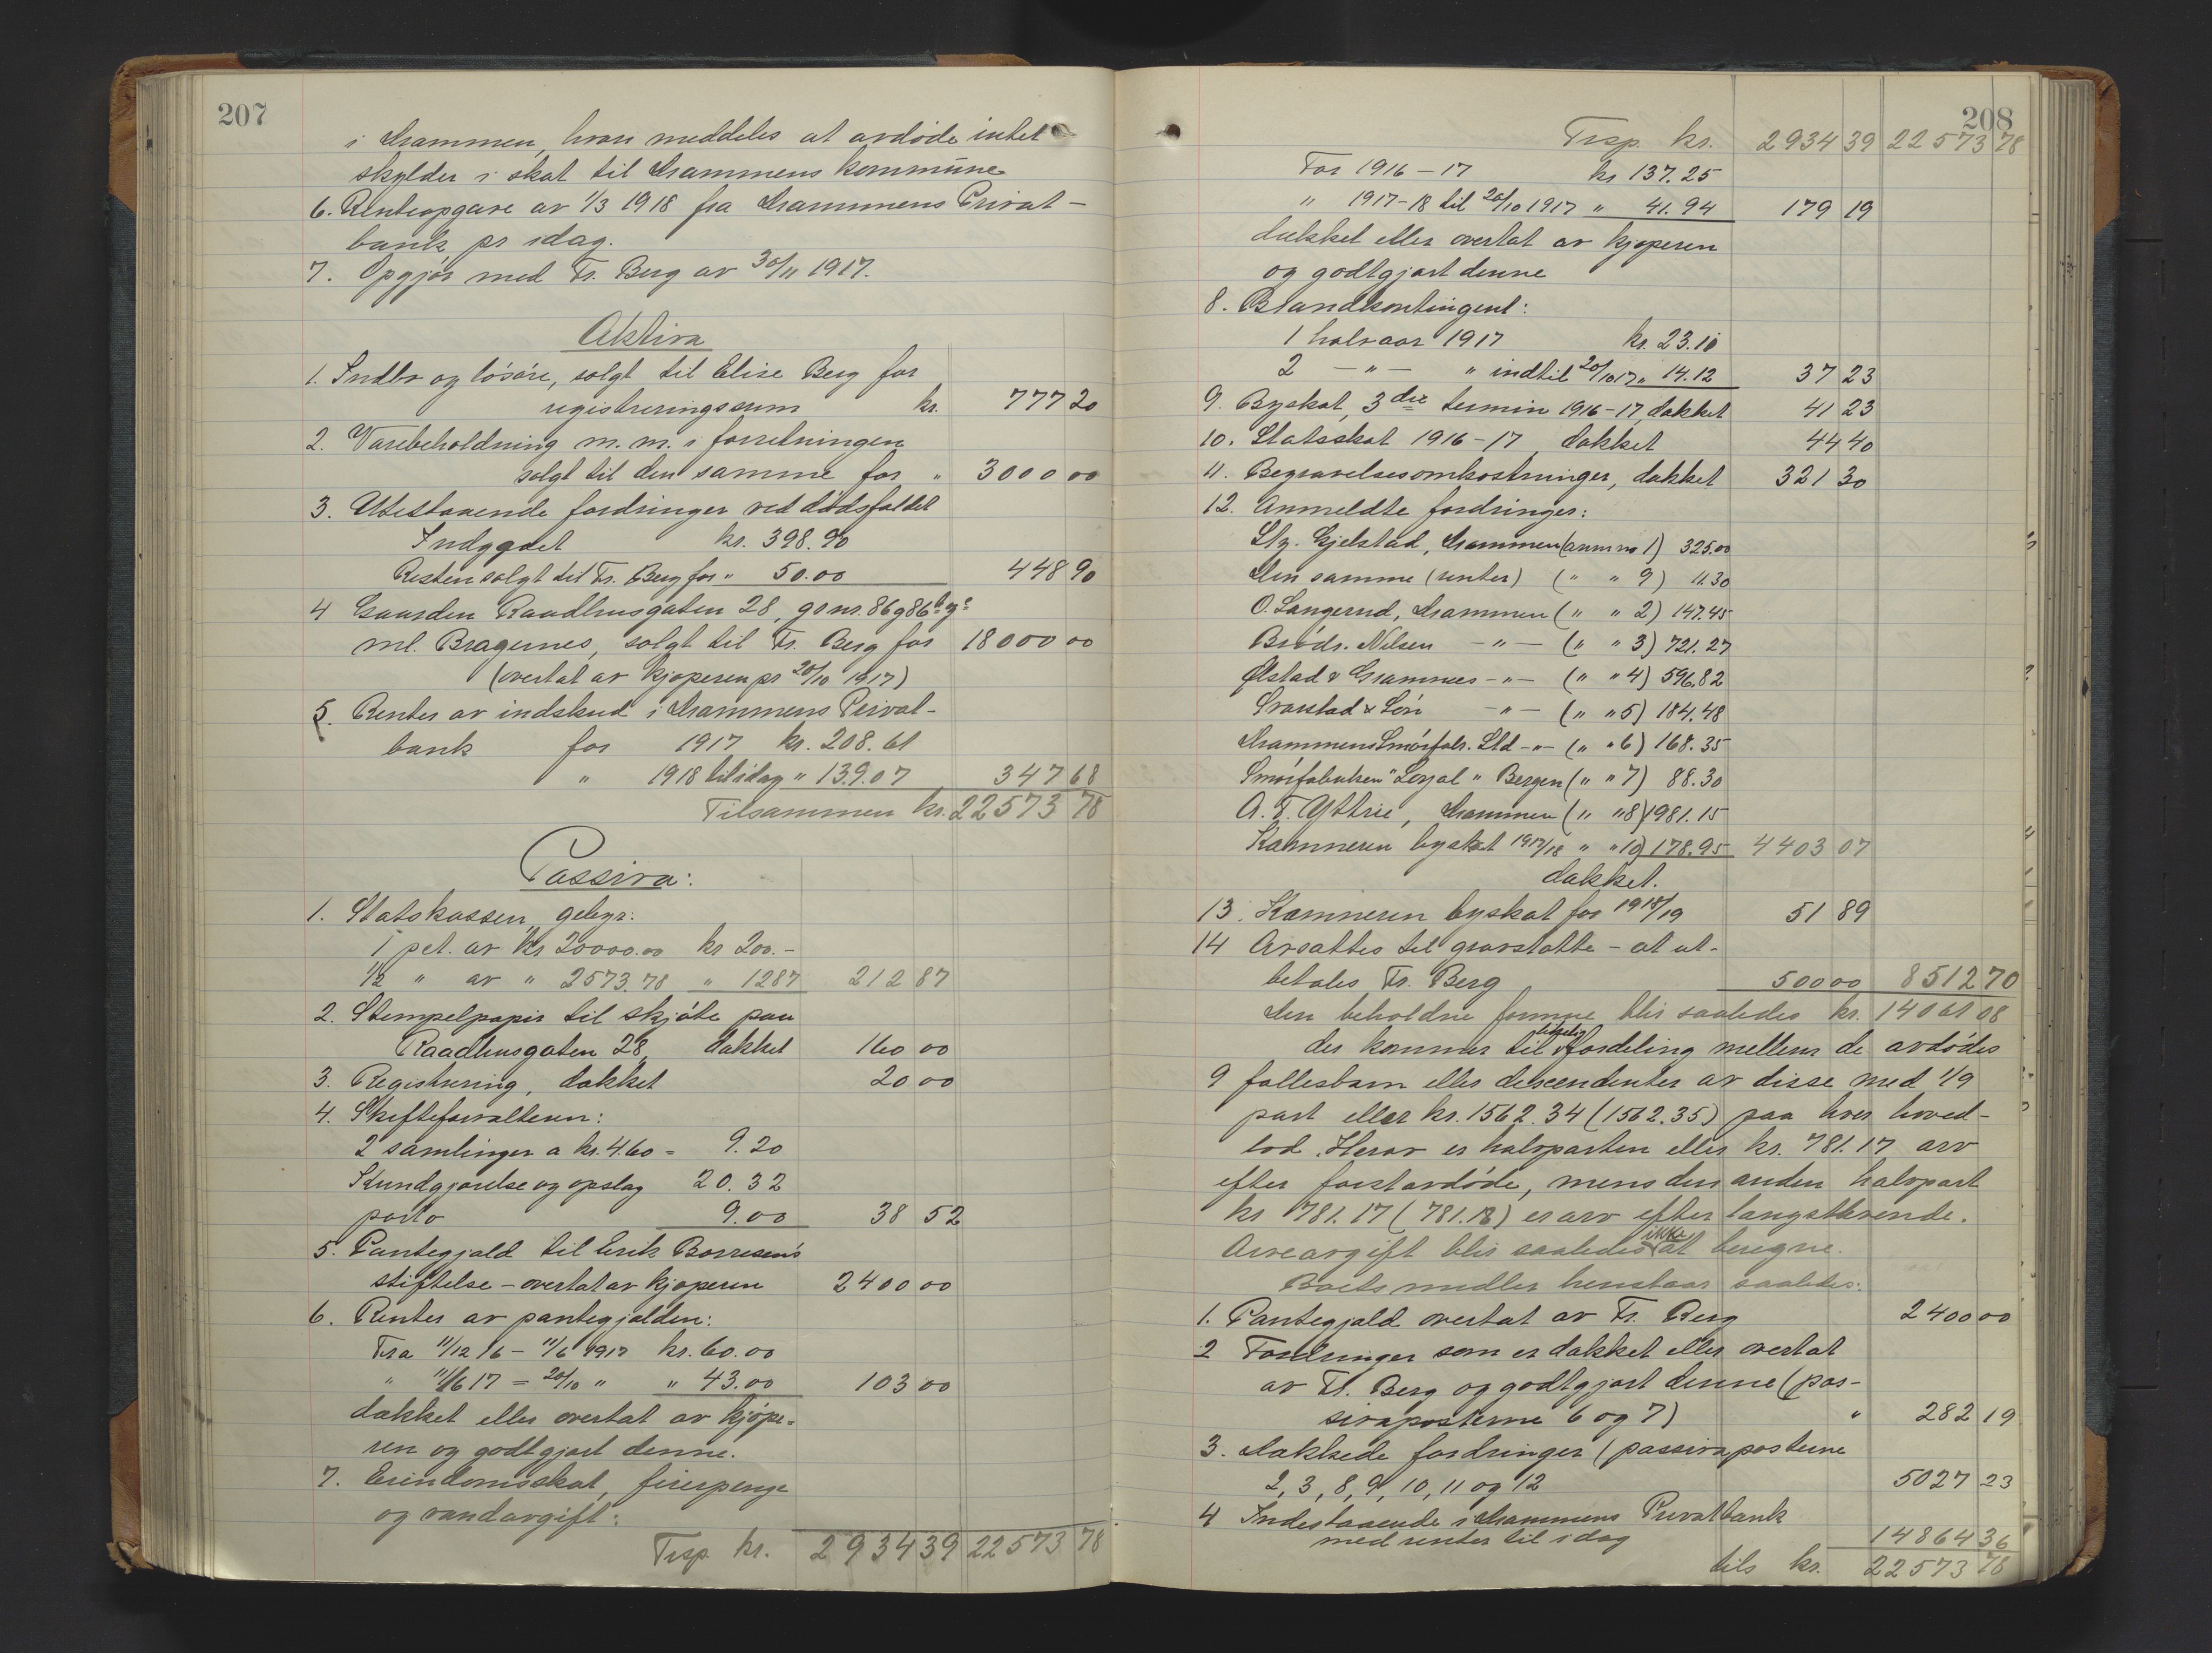 207
i Drammen, hvori meddeles at avdøde intet
skylder i skat til Drammens kommune
6. Renteopgave av 1/3 1918 fra Drammens Privat-
bank pr idag.
7. Opgjør med Fr. Berg av 30/11 1917.
Aktiva
1. Indbo og løsøre, solgt til Elise Berg for
registreringssum kr. 777 20
2. Varebeholdning m. m. i forretningen
solgt til den samme for " 3000 00
3. Utestaaende fordringer ved dødsfaldet
Indggaet kr. 398.90
Resten solgt til Fr. Berg for " 50.00 448 90
4 Gaarden Raadhusgaten 28, grnr. 86 og 86b
ml. Bragernes, solgt til Fr. Berg for 18000 00
(overtat av kjøperen pr 20/10 1917)
5. Renter av indskud i Drammens Privat-
bank for 1917 kr. 208.61
" 1918 til idag " 139.07 347 68
Tilsammen kr. 22573 78
Passiva:
1. Statskassen, gebyr:
1 pct. av kr 20000.00 kr 200.-
1/2 " av " 2573.78 " 1287 212 87
2. Stempelpapir til skjøte paa
Raadhusgaten 28, dækket 160 00
3. Registrering, dækket 20 00
4. Skifteforvalteren:
2 samlinger a kr. 4.60 = 9.20
Kundgjørelse og opslag 20.32
porto 9.00 38 52
5. Pantegjæld til Erik Børresen's
stiftelse - overtat av kjøperen 2400 00
6. Renter av pantegjælden:
Fra 11/12 16 - 11/6 1917 kr. 60.00
" 11/6 17 = 20/10 " " 43.00 103 00
dækket eller overtat av kjøpe-
ren og godtgjort denne.
7. Eiendomsskat, feierpenge
og vandavgift:
Trsp. kr. 2934 39 22573 78
208
Trsp. kr. 2934 39 22573 78
For 1916 - 17 kr 137.25
" 1917-18 til 20/10 1917 " 41.94 179 19
dækket eller overtat av kjøperen
og godtgjort denne
8. Brandkontingent:
1 halvaar 1917 kr. 23.10
2 - " - " indtil 20/10 17 " 14.12 37 23
9. Byskat, 3die termin 1916-17, dækket 41 23
10. Statsskat 1916-17 dækket 44 40
11. Begravelsesomkostninger, dækket 321 30
12. Anmeldte fordringer:
Gjelstad, Drammen (anm no 1) 325.00
Den samme (renter) ( " " 9) 11.30
O. Langerud, Drammen ( " " 2) 147.45
Brødr. Nilsen - " - ( " " 3) 721.27
Ølstad & Grammes - " - ( " " 4) 596.82
& Søn - " - ( " " 5) 184.48
Drammens Smørfabr. Ltd - " - ( " " 6) 168.35
Smørfabrikken "Loyal" Bergen ( " " 7) 88.30
A. T. Yttrie, Drammen ( " " 8) 1981.15
Kæmneren byskat 1917/18 " " 10) 178.95 4403 07
dækket.
13. Kæmneren byskat for 1918/19 51 89
14 Avsættes til gravstøtte - at ut-
betales Fr. Berg 500 00 8512 70
Den beholdne formue blir saaledes kr. 14061 08
der kommer til likelig fordeling mellem de avdødes
9 fællesbarn eller descendenter av disse med 1/9
part eller kr. 1562.34 (1562.35) paa hver hoved-
lod. Herav er halvparten eller kr. 781.17 arv
efter førstavdøde, mens den anden halvpart
kr 781.17 (781.18) er arv efter længstlevende.
Arveavgift blir saaledes ikke at beregne.
Boets midler henstaar saaledes:
1. Pantegjæld overtat av Fr. Berg 2400 00
2 Fordringer som er dækket eller overtat
av Fr. Berg og godtgjort denne (pas-
sivaposterne 6 og 7) " 282 19
3. Dækkede fordringer (passivaposterne
2, 3, 8, 9, 10, 11 og 12 5027 23
4 Indestaaende i Drammens Privatbank
med renter til idag 14864 36
tils kr. 22573 78